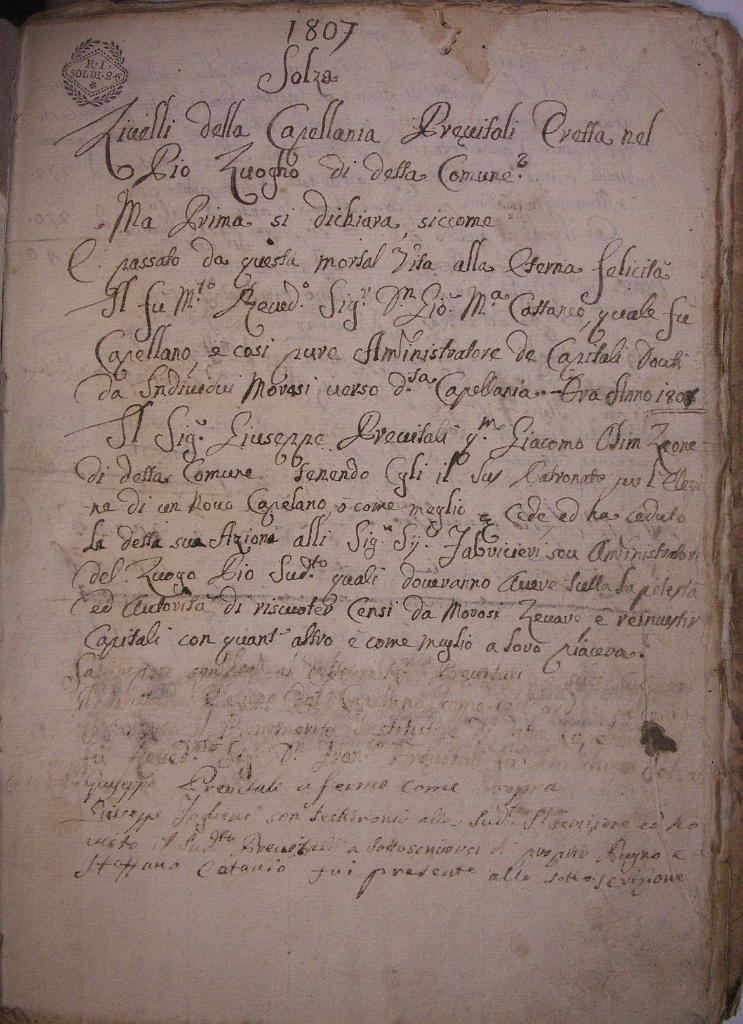 1807
R. I.
SOLDI 2.6
Solza
Livelli della Capellania Previtali Eretta nel
Pio Luogho di detta Comune.
Ma Prima si dichiara siccome
E passato da questa mortal Vita alla Eterna felicità
Il fù M.to Reved.o Sig.r Dn Gio. M.a Cattaneo, quale fù
Capellano, e cosi pure Aministratore de Capitali Douti
da Individui Morosi verso d.ta Capellania. Ora Anno 1807
Il Sig.r Giuseppe Previtali q.m Giacomo Leone
di detta Comune tenendo Egli il Jus Patronato per l'Elezio
ne di un novo Capelano, o come meglio Cede ed ha ceduto
La detta sua Azioni alli Sig.ri Fabricieri seu Aministratori
del Luogo Pio Sud.to quali doveranno Avere tutta la potestà
ed Autorità di riscuoter Censi da Morosi Levare e reinvestir
Capitali con quant'altro e come meglio a loro piacera.
Previtali suoi
Elezione del Capelano come
il Benemerito Institutore
fù Reved. Sig. Dn Fran. Previtali
Giuseppe Previtali afermo come sopra
Giuseppe con testimonio alla Sud.
il Sud.to Previtali a sottoscriverci di proprio Pugno e
Steffano Catanio fui presente alla sottoscrizione